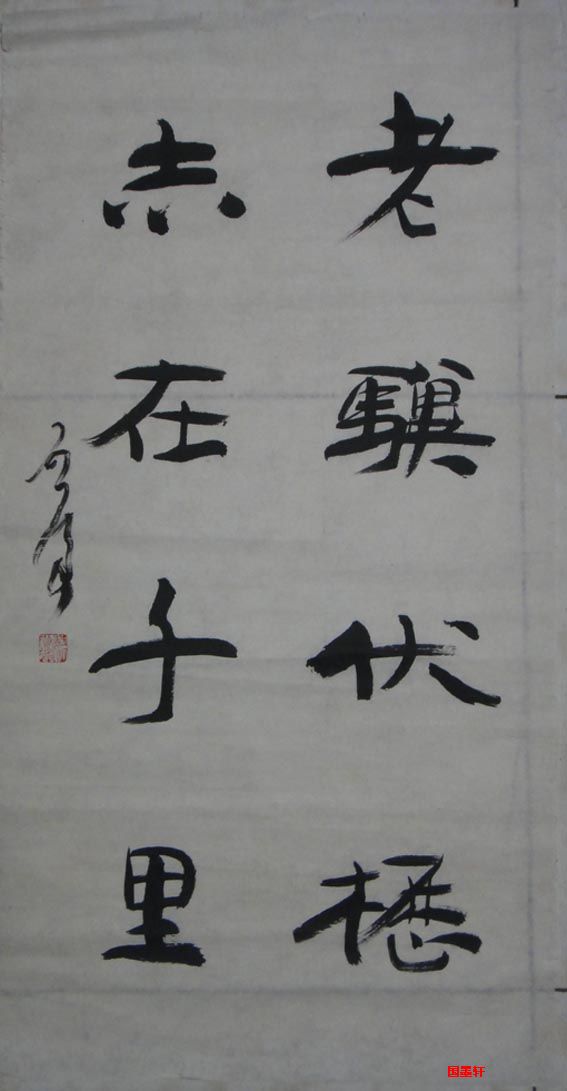 老骥伏枥
志在千里
国墨轩